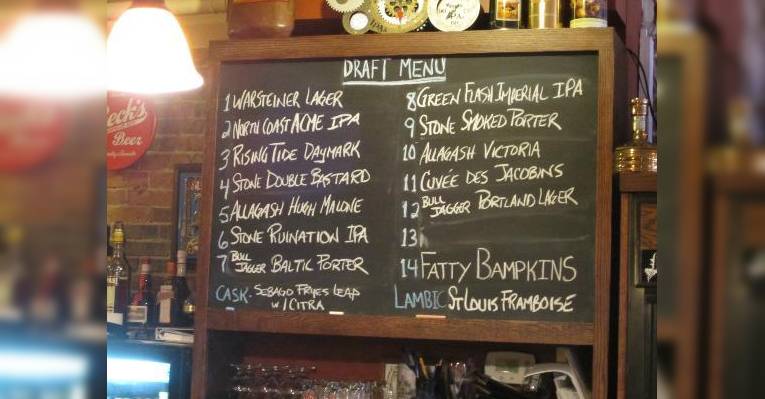 DRAFT MENU
1 WARSTEINER LAGER
2 NORTH COAST ACME IPA
3 RISING TIDE DAYMARK
4 STONE DOUBLE BASTARD
5 ALLAGASH HUGH MALONE
6 STONE RUINATION IPA
7 BULL JAGGER BALTIC PORTER
CASK - SEBAGO FRYES LEAP
W/ CITRA
8 GREEN FLASH IMPERIAL IPA
9 STONE SMOKED PORTER
10 ALLAGASH VICTORIA
11 CUVÉE DES JACOBINS
12 BULL JAGGER PORTLAND LAGER
13
14 FATTY BAMPKINS
LAMBIC ST LOUIS FRAMBOISE
Beck's
Beer